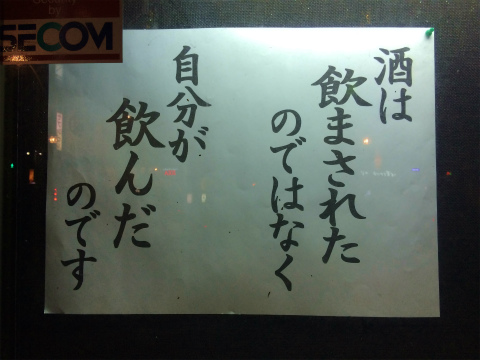 酒は
飲まされた
のではなく
自分が
飲んだ
のです
by
SECOM